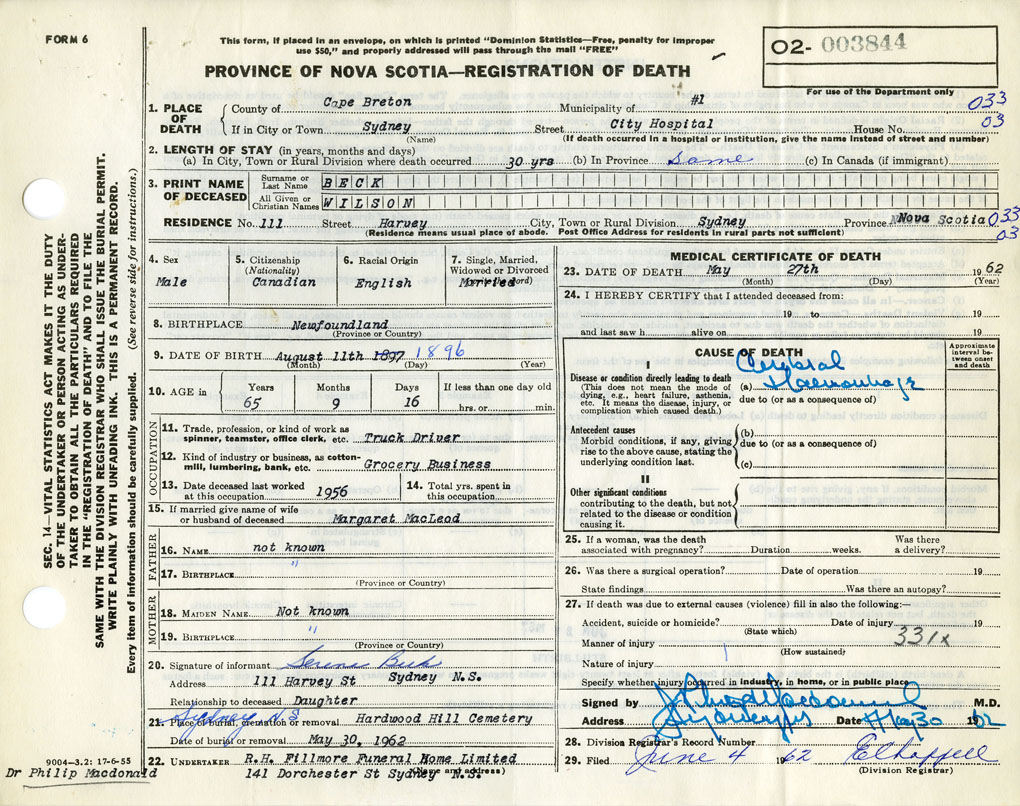 FORM 6
This form, if placed in an envelope, on which is printed "Dominion Statistics—Free, penalty for improper
use $50," and properly addressed will pass through the mail "FREE"
PROVINCE OF NOVA SCOTIA—REGISTRATION OF DEATH
O2- 003844
For use of the Department only
033
03
1. PLACE OF DEATH County of Cape Breton Municipality of #1
If in City or Town Sydney Street City Hospital House No.
(Name) (If death occurred in a hospital or institution, give the name instead of street and number)
2. LENGTH OF STAY (in years, months and days)
(a) In City, Town or Rural Division where death occurred 30 yrs (b) In Province Same (c) In Canada (if immigrant)
3. PRINT NAME OF DECEASED
Surname or Last Name BECK
All Given or Christian Names WILSON
RESIDENCE No. 111 Street Harvey City, Town or Rural Division Sydney Province Nova Scotia 033
03
(Residence means usual place of abode. Post Office Address for residents in rural parts not sufficient)
4. Sex
Male
5. Citizenship
(Nationality)
Canadian
6. Racial Origin
English
7. Single, Married,
Widowed or Divorced
Married
8. BIRTHPLACE Newfoundland
(Province or Country)
9. DATE OF BIRTH August 11th 1897 1896
(Month) (Day) (Year)
10. AGE in Years Months Days If less than one day old
65 9 16 hrs. or min.
OCCUPATION
11. Trade, profession, or kind of work as
spinner, teamster, office clerk, etc. Truck Driver
12. Kind of industry or business, as cotton-
mill, lumbering, bank, etc. Grocery Business
13. Date deceased last worked
at this occupation 1956
14. Total yrs. spent in
this occupation
15. If married give name of wife
or husband of deceased Margaret MacLeod
FATHER
16. NAME not known
17. BIRTHPLACE "
(Province or Country)
MOTHER
18. MAIDEN NAME Not known
19. BIRTHPLACE "
(Province or Country)
20. Signature of informant Beck
Address 111 Harvey St Sydney N.S.
Relationship to deceased Daughter
Sydney N.S.
21. Place of burial, cremation or removal Hardwood Hill Cemetery
Date of burial or removal May 30, 1962
22. UNDERTAKER R.H. Fillmore Funeral Home Limited
141 Dorchester St Sydney N.S.
(Name and address)
9004—3.2: 17-6-55
Dr Philip Macdonald
MEDICAL CERTIFICATE OF DEATH
23. DATE OF DEATH May 27th 1962
(Month) (Day) (Year)
24. I HEREBY CERTIFY that I attended deceased from:
19 to 19
and last saw h alive on 19
CAUSE OF DEATH
Approximate interval between onset and death
I
Disease or condition directly leading to death
(This does not mean the mode of
dying, e.g., heart failure, asthenia,
etc. It means the disease, injury, or
complication which caused death.)
(a) Cerebral Haemorrhage
due to (or as a consequence of)
Antecedent causes
Morbid conditions, if any, giving
rise to the above cause, stating the
underlying condition last.
(b)
due to (or as a consequence of)
(c)
II
Other significant conditions
contributing to the death, but not
related to the disease or condition
causing it.
25. If a woman, was the death
associated with pregnancy? Duration weeks. Was there a delivery?
26. Was there a surgical operation? Date of operation 19
State findings Was there an autopsy?
27. If death was due to external causes (violence) fill in also the following:—
Accident, suicide or homicide? Date 19
(State which)
Manner of injury 331x
(How sustained)
Nature of injury
Specify whether injury occurred in industry, in home, or in public place
Signed by M.D.
Address Sydney NS Date May 30 1962
28. Division Registrar's Record Number
29. Filed June 4 1962 E Chappell
(Division Registrar)
SEC. 14—VITAL STATISTICS ACT MAKES IT THE DUTY
OF THE UNDERTAKER OR PERSON ACTING AS UNDER-
TAKER TO OBTAIN ALL THE PARTICULARS REQUIRED
IN THE "REGISTRATION OF DEATH" AND TO FILE THE
SAME WITH THE DIVISION REGISTRAR WHO SHALL ISSUE THE BURIAL PERMIT.
WRITE PLAINLY WITH UNFADING INK. THIS IS A PERMANENT RECORD.
Every item of information should be carefully supplied. (See reverse side for instructions.)